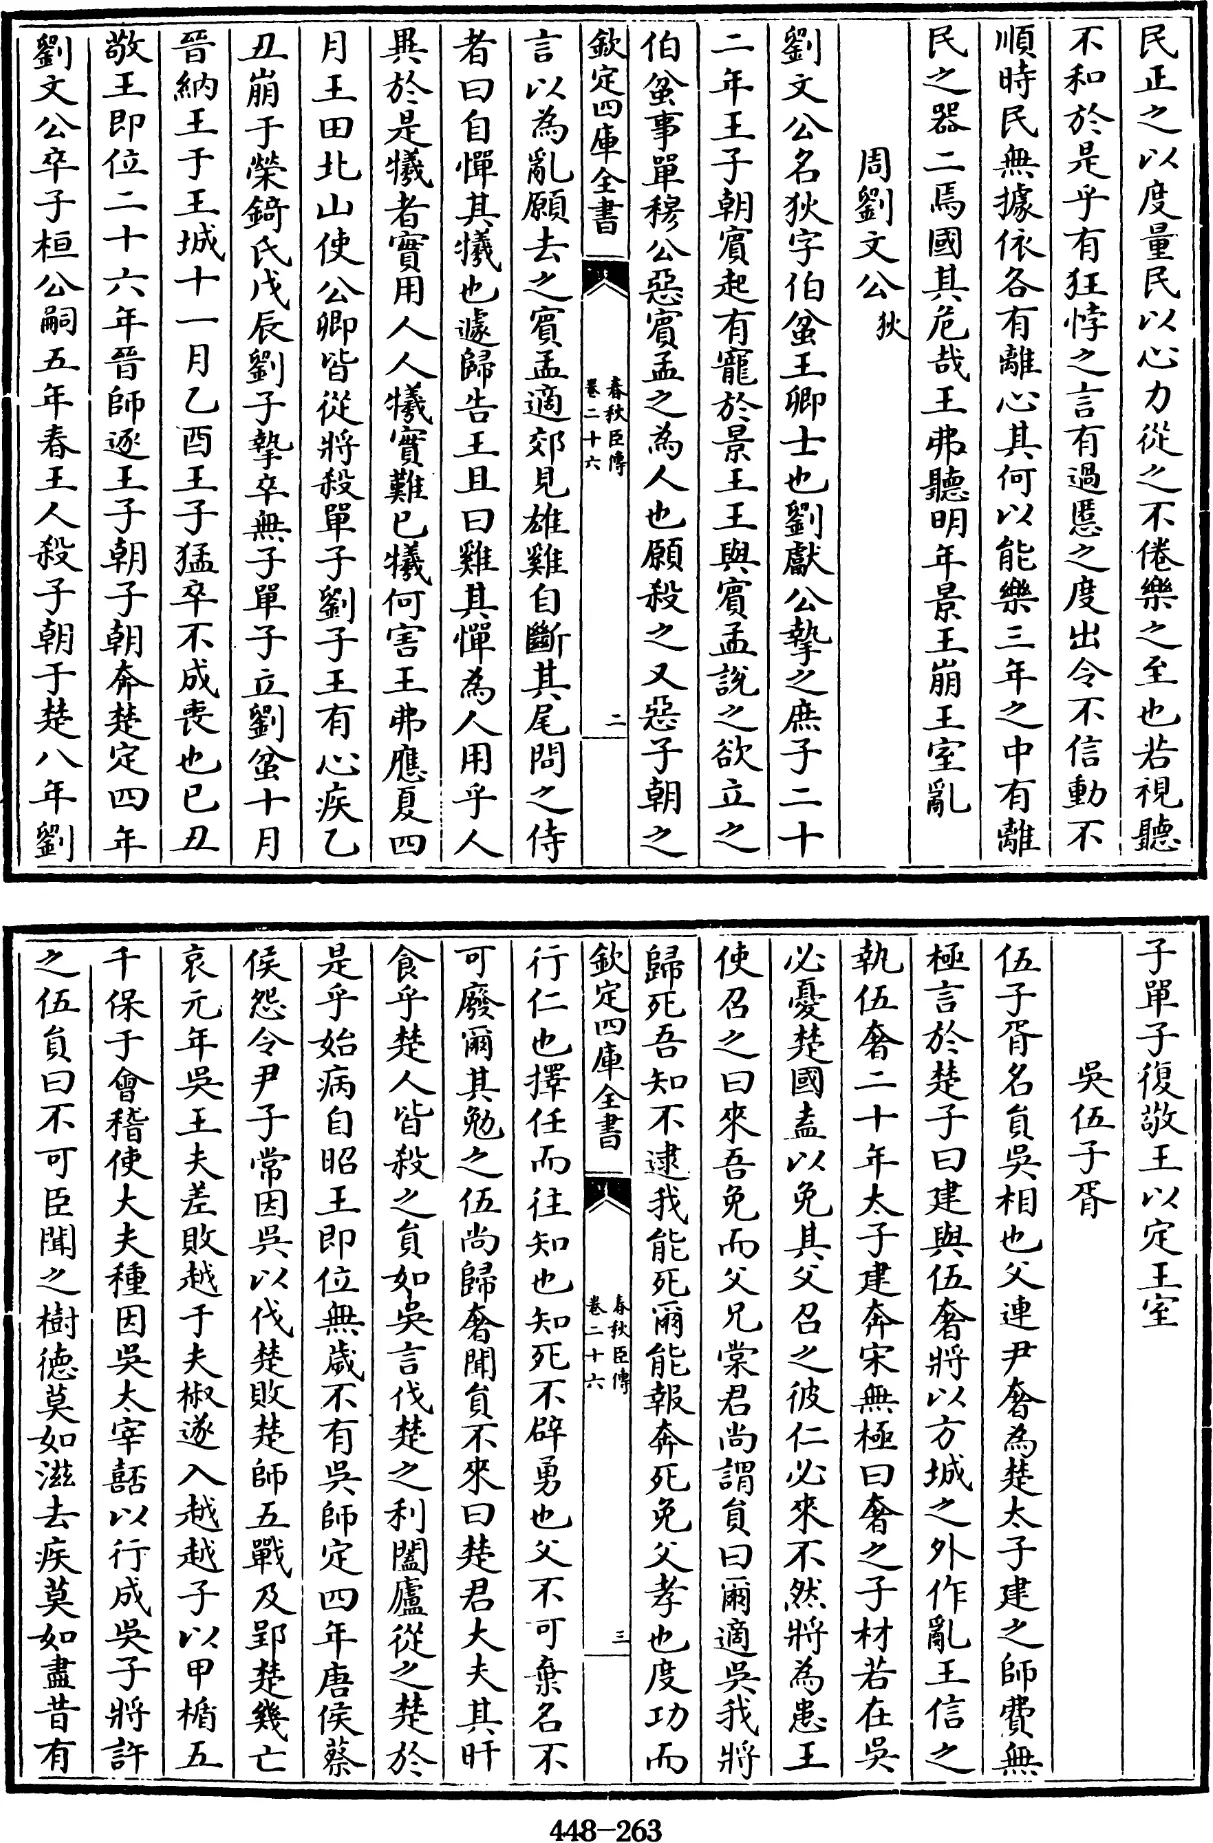 民正之以度量民以心力從之不倦樂之至也若視聽
不和於是乎有狂悖之言有過慝之度出令不信動不
順時民無據依各有離心其何以能樂三年之中有離
民之器二焉國其危哉王弗聽明年景王崩王室亂
周劉文公狄
劉文公名狄字伯蚠王卿士也劉獻公摯之庶子二十
二年王子朝賓起有寵於景王王與賓孟説之欲立之
伯蚠事單穆公惡賓孟之為人也願殺之又惡子朝之
欽定四庫全書
春秋臣傳
卷二十六
二
言以為亂願去之賓孟適郊見雄雞自斷其尾問之侍
者曰自憚其犧也遽歸告王且曰雞其憚為人用乎人
異於是犧者實用人人犧實難已犧何害王弗應夏四
月王田北山使公卿皆從將殺單子劉子王有心疾乙
丑崩于榮錡氏戊辰劉子摯卒無子單子立劉蚠十月
晉納王于王城十一月乙酉王子猛卒不成喪也已丑
敬王即位二十六年晉師逐王子朝子朝奔楚定四年
劉文公卒子桓公嗣五年春王人殺子朝于楚八年劉
子單子復敬王以定王室
吳伍子胥
伍子胥名員吳相也父連尹奢為楚太子建之師費無
極言於楚子曰建與伍奢將以方城之外作亂王信之
執伍奢二十年太子建奔宋無極曰奢之子材若在吳
必憂楚國盍以免其父召之彼仁必來不然將為患王
使召之曰來吾免而父兄棠君尚謂員曰爾適吳我將
歸死吾知不逮我能死爾能報奔死免父孝也度功而
欽定四庫全書
春秋臣傳
卷二十六
三
行仁也擇任而往知也知死不辟勇也父不可棄名不
可廢爾其勉之伍尚歸奢聞員不來曰楚君大夫其旰
食乎楚人皆殺之員如吳言伐楚之利闔廬從之楚於
是乎始病自昭王即位無歲不有吳師定四年唐侯蔡
侯怨令尹子常因吳以伐楚敗楚師五戰及郢楚幾亡
哀元年吳王夫差敗越于夫椒遂入越越子以甲楯五
千保于會稽使大夫種因吳太宰嚭以行成吳子將許
之伍員曰不可臣聞之樹德莫如滋去疾莫如盡昔有
448-263